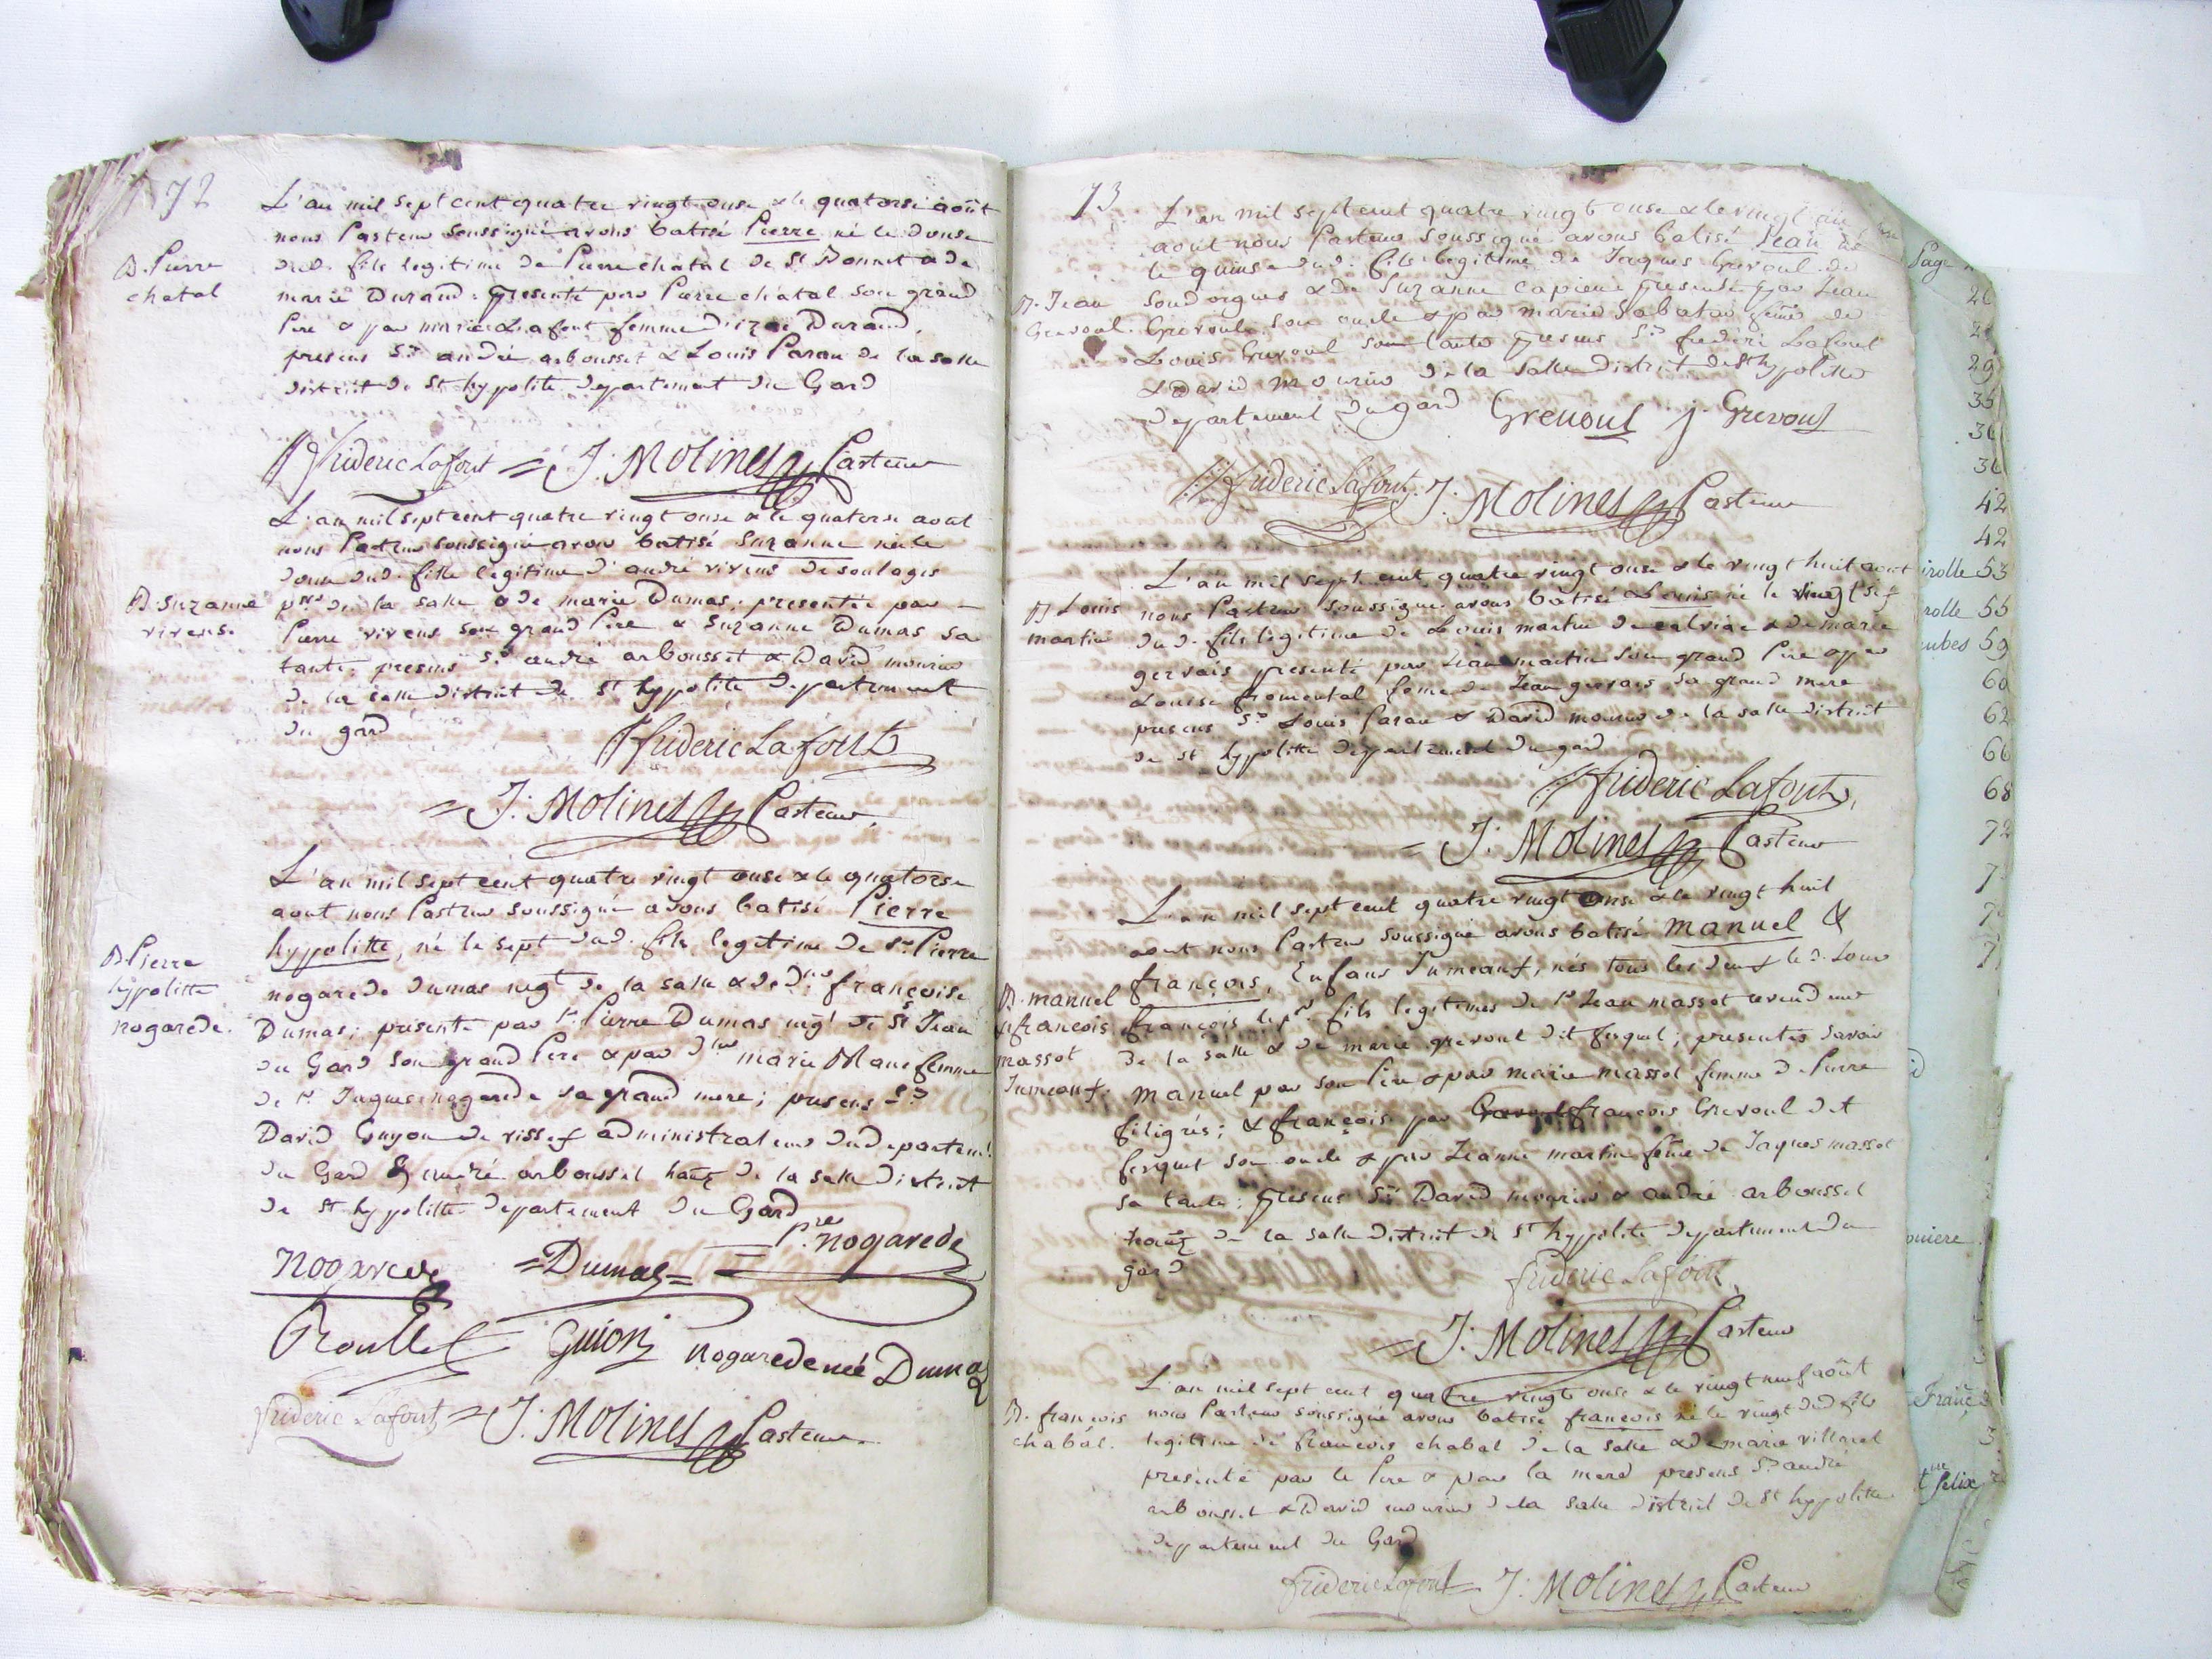 72
L'an mil sept cent quatre vingt onse & le quatorse août
nous Pasteur soussigné avons batisé Pierre né le douse
B. Pierre
chatal
dud. fils legitime de Pierre chatal de St Bonnet & de
marie Durand: presenté par Pierre chatal son grand
Pere & par marie Lafont femme d' Durand.
presens Srs andré arbousset & Louis Paran de la salle
district de St hypolite departement du Gard
frideric Lafont = J: Molines Pasteur
L'an mil sept cent quatre vingt onse & le quatorse aout
nous Pasteur soussigné avons batisé Suzanne née le
douse dud. fille legitime d'andré vivens de soulages
B. Suzanne
vivens.
psse de la salle & de marie Dumas; presentée par
Pierre vivens son grand Pere & Suzanne Dumas sa
tante; presens Srs andré arbousset & David mourier
de la salle district de St hypolite departement
du gard
frideric Lafont
= J: Molines Pasteur
L'an mil sept cent quatre vingt onse & le quatorse
aout nous Pasteur soussigné avons batisé Pierre
hypolitte, né le sept dud. fils legitime de Sr Pierre
B. Pierre
hypolitte
nogarede.
nogarede Dumas negt de la salle & de françoise
Dumas; presenté par Sr Pierre Dumas negt de St Jean
du Gard son grand Pere & par marie femme
de Sr Jaques nogarede sa grand mere; presens Srs
David Guyon de administrateur du departemt
du Gard & andré arbousset de la salle district
de St hypolitte departement du Gard
nogarede =Dumas= pre nogarede
Guion nogarede neé Dumas
frideric Lafont = J: Molines Pasteur
73
L'an mil sept cent quatre vingt onse & le vingt
aout nous Pasteur soussigné avons batisé Jean né
le quinse dud. fils legitime de Jaques Grevoul de
B. Jean
Grevoul.
soudorgues & de Suzanne presenté par Jean
Grevoul son oncle & par marie Sabatier feme de
Louis Grevoul sa tante presens Srs frederic Lafont
& David mourier de la salle district de St hypolitte
departement du gard Grevoul j. Grevoul
frideric Lafont. J: Molines Pasteur
L'an mil sept cent quatre vingt onse & le vingt huit aout
B. Louis
martin
nous Pasteur soussigné avons batisé Louis né le vingt
dud. fils legitime de Louis martin de calviac & de marie
gervais presenté par Jean martin son grand Pere & par
Louise fromental feme de Jean gervais sa grand mere
presens Srs Louis Paran & David mourier de la salle district
de st hypolitte departement du gard
frideric Lafont,
= J: Molines Pasteur
L'an mil sept cent quatre vingt onse & le vingt huit
aout nous Pasteur soussigné avons batisé manuel &
françois, Enfans Jumeaux, nés tous les deux le
B. manuel
& francois
massot
Jumeaux.
françois fils legitimes de Sr Jean massot
de la salle & de marie grevoul dit ferquet; presentés savoir
manuel par son Pere & par marie massot femme de Pierre
; & françois par françois Grevoul dit
ferquet son oncle & par Jeanne martin feme de Jaques massot
sa tante; presens Srs David mourier & andré arbousset
de la salle district de St hypolite departement du
gard
frideric Lafont
= J: Molines Pasteur
L'an mil sept cent quatre vingt onse & le vingt neuf août
B. francois
chabal.
nous Pasteur soussigné avons batisé francois né le vingt dud fils
legitime de francois chabal de la salle & de marie villaret
presenté par le Pere & par la mere presens Srs andré
arbousset & David mourier de la salle district de St hypolitte
departement du Gard
frideric Lafont = J: Molines Pasteur
Page
29
42
42
irolle 53
rolle 55
59
60
62
66
68
72
Franç
felix